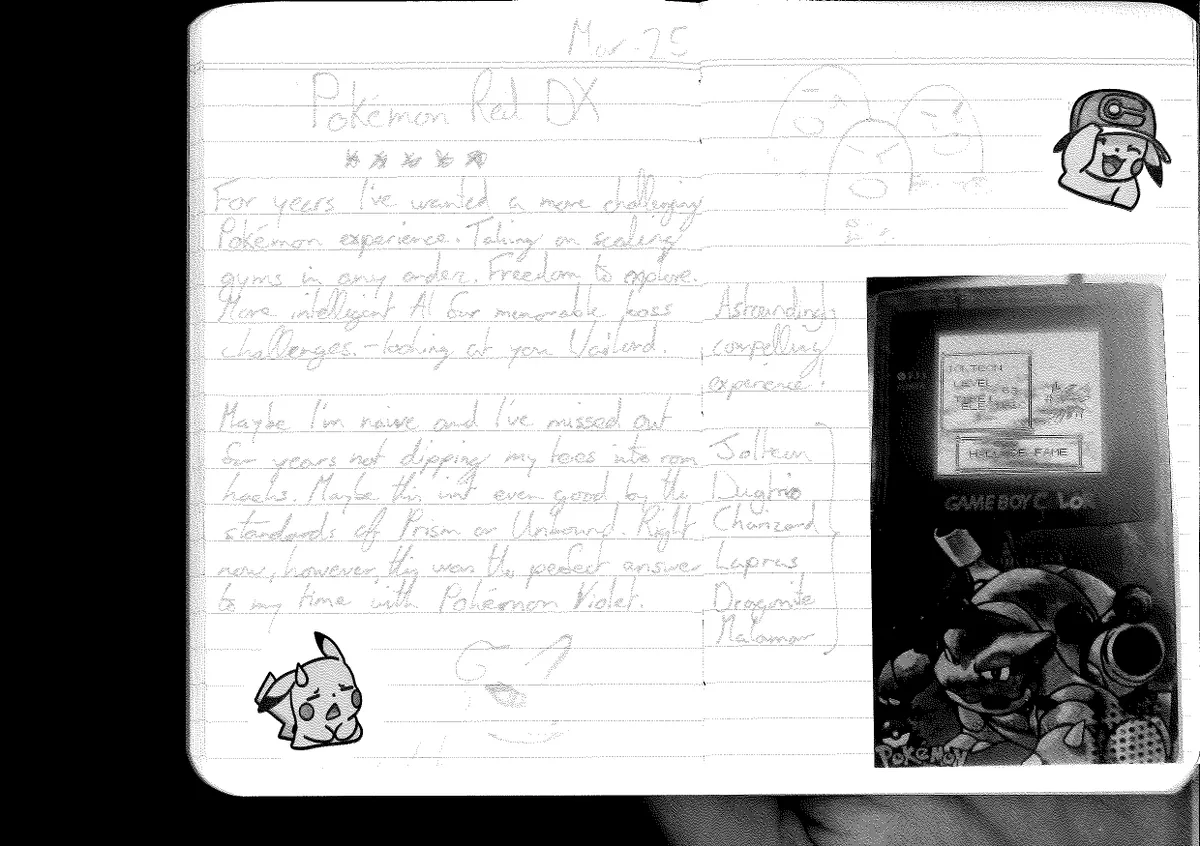 Mar. 25
Pokémon Red DX
For years I've wanted a more challenging
Pokémon experience. Taking on scaling
gyms in any order. Freedom to explore.
More intelligent AI for memorable boss
challenges. - looking at you Wailord.
Maybe I'm naive and I've missed out
for years not dipping my toes into rom
hacks. Maybe this isn't even good by the
standards of Prism or Unbound. Right
now, however, this was the perfect answer
to my time with Pokémon Violet.
Astounding
compelling
experience!
Jolteon
Dugtrio
Charizard
Lapras
Dragonite
Malamar
JOLTEON
LEVEL
HALL OF FAME
GAME BOY COLOR
POKéMON